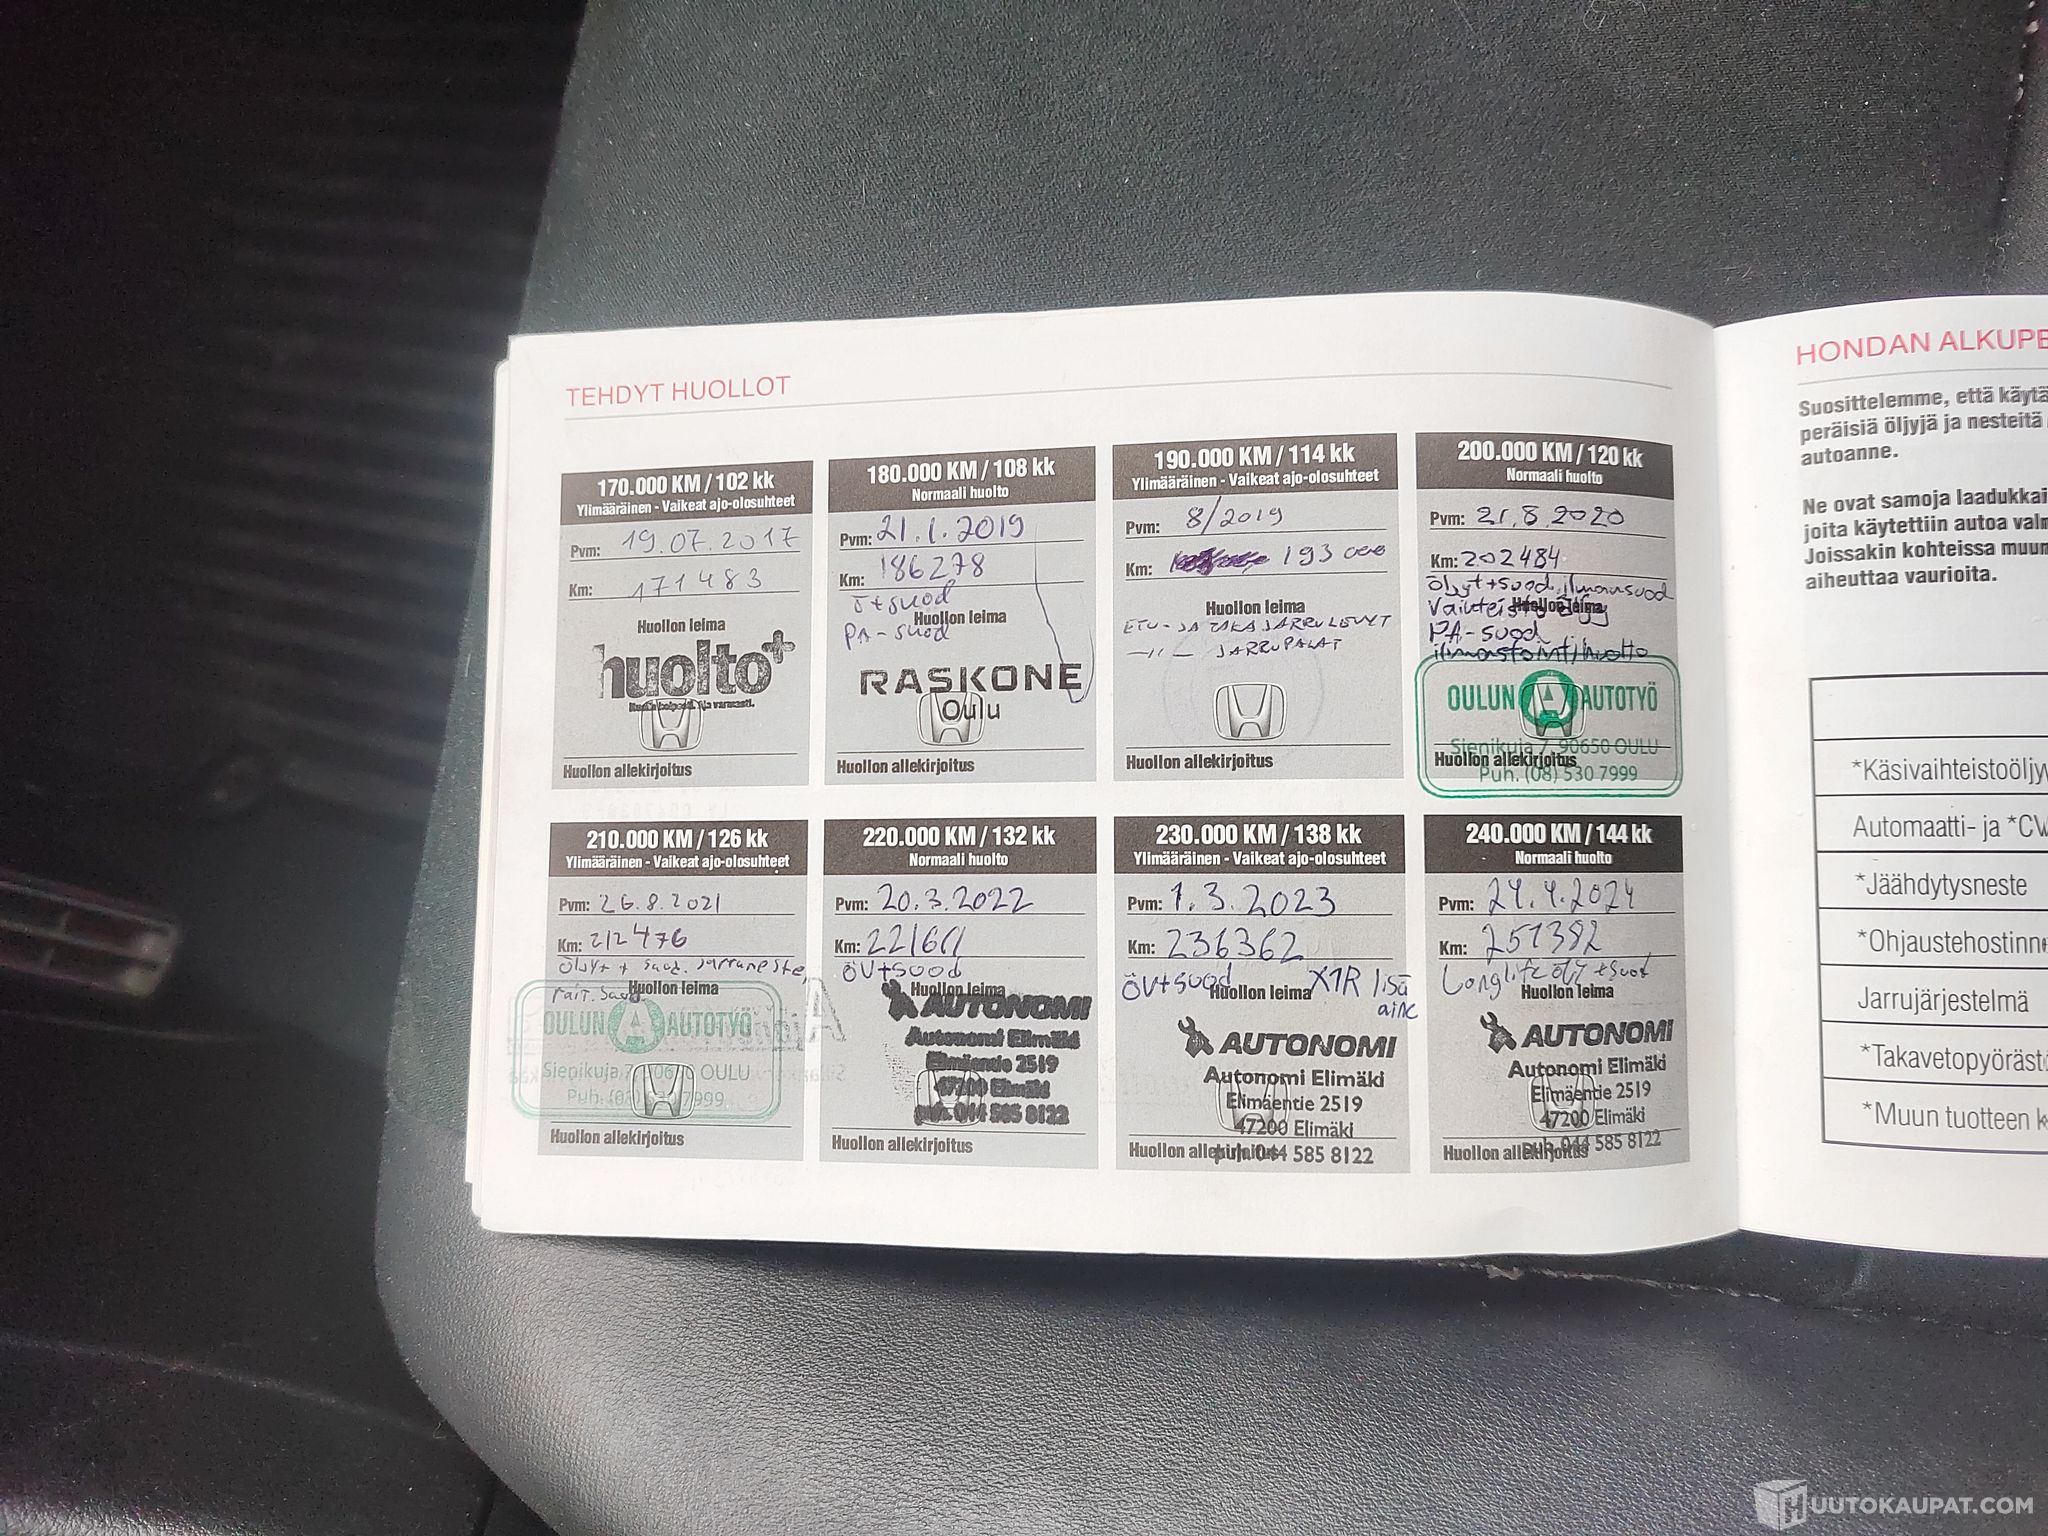 TEHDYT HUOLLOT
170.000 KM / 102 kk
Ylimääräinen - Vaikeat ajo-olosuhteet
Pvm: 19.07.2017
Km: 171483
Huollon leima
huolto+
Huollon allekirjoitus
180.000 KM / 108 kk
Normaali huolto
Pvm: 21.1.2019
Km: 186278
Ö+suod
Huollon leima
PA-suod
RASKONE
Oulu
Huollon allekirjoitus
190.000 KM / 114 kk
Ylimääräinen - Vaikeat ajo-olosuhteet
Pvm: 8/2019
Km: 193 000
Huollon leima
ETU- JA TAKA JARRULEVYT
-11- JARRUPALAT
Huollon allekirjoitus
200.000 KM / 120 kk
Normaali huolto
Pvm: 21.8.2020
Km: 202484
Öljyt+suod, ilmansuod
Vaihteistoöljy
Huollon leima
PA-suod
ilmastointihuolto
OULUN AUTOTYÖ
Sienikuja 7, 90650 OULU
Huollon allekirjoitus
Puh. (08) 530 7999
210.000 KM / 126 kk
Ylimääräinen - Vaikeat ajo-olosuhteet
Pvm: 26.8.2021
Km: 212476
Öljyt + suod. Jarruneste,
rait. suod
Huollon leima
OULUN AUTOTYÖ
Sienikuja 7, 90650 OULU
Puh. (08) 530 7999
Huollon allekirjoitus
220.000 KM / 132 kk
Normaali huolto
Pvm: 20.3.2022
Km: 221611
ÖV+suod
Huollon leima
AUTONOMI
Autonomi Elimäki
Elimäentie 2519
47200 Elimäki
puh. 044 585 8122
Huollon allekirjoitus
230.000 KM / 138 kk
Ylimääräinen - Vaikeat ajo-olosuhteet
Pvm: 1.3.2023
Km: 236362
ÖV+suod X1R lisä
aine
Huollon leima
AUTONOMI
Autonomi Elimäki
Elimäentie 2519
47200 Elimäki
puh. 044 585 8122
Huollon allekirjoitus
240.000 KM / 144 kk
Normaali huolto
Pvm: 24.4.2024
Km: 251382
Longlife öljy +suod
Huollon leima
AUTONOMI
Autonomi Elimäki
Elimäentie 2519
47200 Elimäki
puh. 044 585 8122
Huollon allekirjoitus
HONDAN ALKUPE
Suosittelemme, että käytä
peräisiä öljyjä ja nesteitä
autoanne.
Ne ovat samoja laadukkai
joita käytettiin autoa valm
Joissakin kohteissa muun
aiheuttaa vaurioita.
*Käsivaihteistoöljy
Automaatti- ja *CV
*Jäähdytysneste
*Ohjaustehostinn
Jarrujärjestelmä
*Takavetopyöräst
*Muun tuotteen k
HUUTOKAUPAT.COM